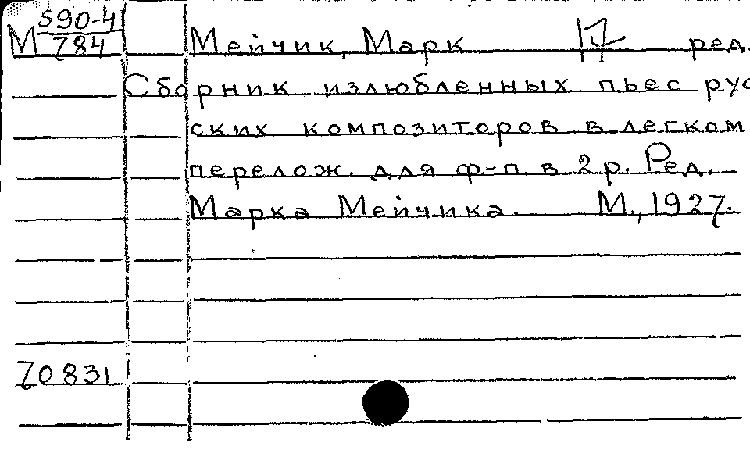 М 590-4/784 Мейчик, Марк ред.
Сборник излюбленных пьес рус
ских композиторов в легком
перелож. для ф-п. в 2 р. Ред.
Марка Мейчика. М., 1927.
70831